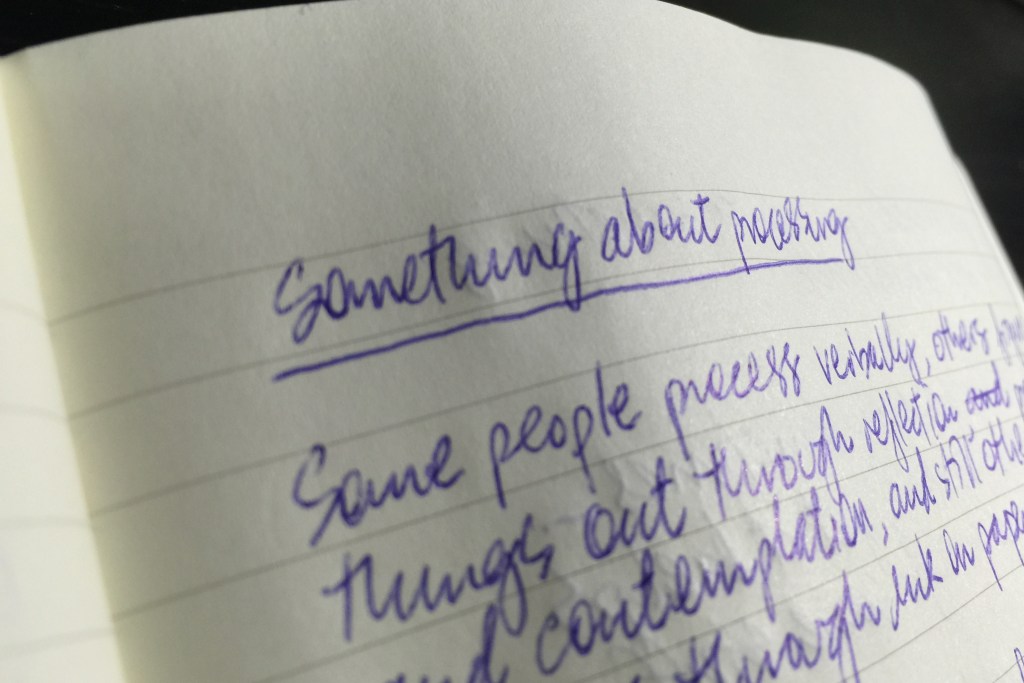 Something about processing
Some people process verbally, others
things out through reflection and
and contemplation, and still
through ink on